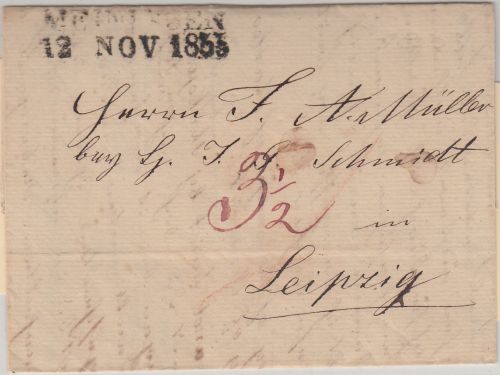 MEININGEN
12 NOV 1853
Herrn F. A. Müller
bey H. J. G. Schmidt
3 1/2
in
Leipzig